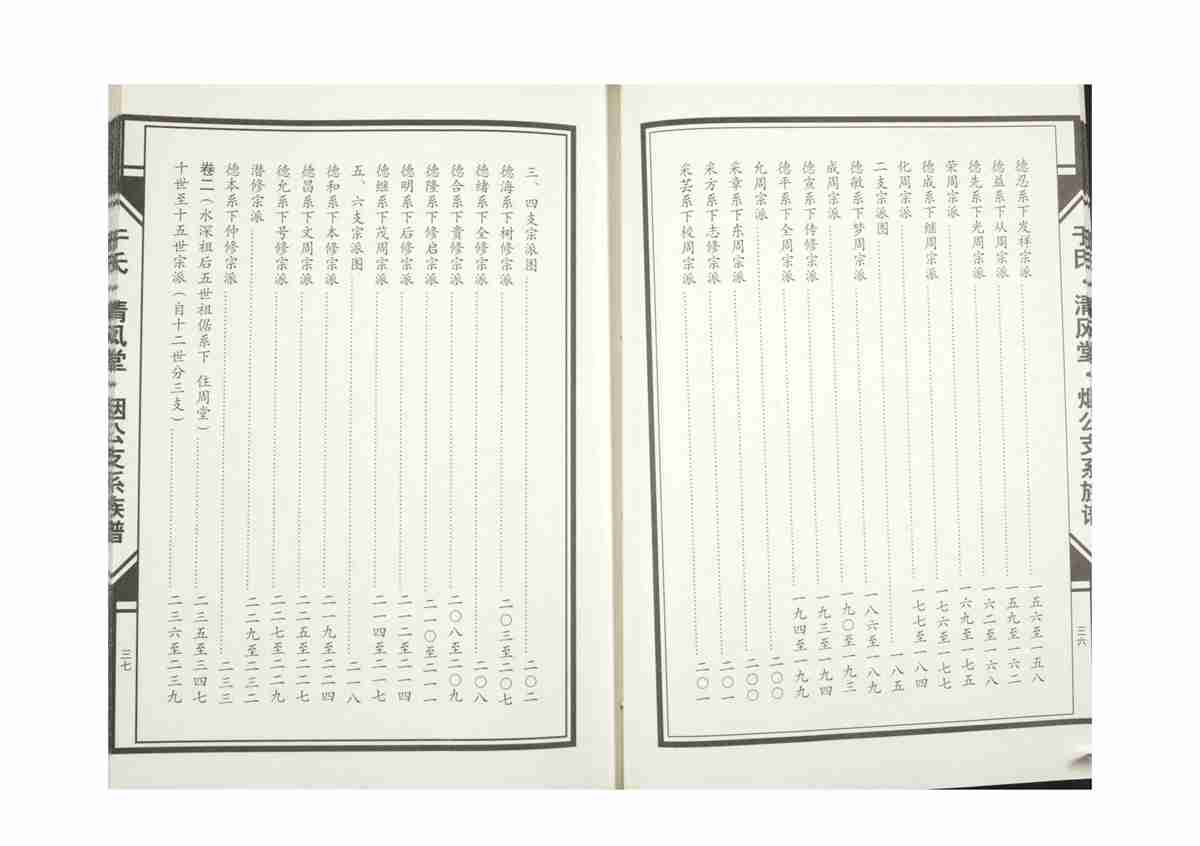 于氏·清风堂·烟公支系族谱
三六
德忍系下发祥宗派……一五六至一五八
德益系下从周宗派……一五九至一六二
德先系下光周宗派……一六二至一六八
荣周宗派……一六九至一七五
德成系下继周宗派……一七六至一七七
化周宗派……一七七至一八四
二支宗派图……一八五
德敏系下梦周宗派……一八六至一八九
成周宗派……一九〇至一九三
德宣系下传修宗派……一九三至一九四
德平系下全周宗派……一九四至一九九
允周宗派……二〇〇
采章系下东周宗派……二〇〇
采方系下志修宗派……二〇一
采芸系下校周宗派……二〇一
三、四支宗派图……二〇二
德海系下树修宗派……二〇三至二〇七
德绪系下全修宗派……二〇八
德合系下贵修宗派……二〇八至二〇九
德隆系下修启宗派……二一〇至二一一
德明系下后修宗派……二一二至二一四
德继系下茂周宗派……二一四至二一七
五、六支宗派图……二一八
德和系下本修宗派……二一九至二二四
德昌系下文周宗派……二二五至二二七
德允系下号修宗派……二二七至二二九
潜修宗派……二二九至二三二
德本系下仲修宗派……二三三
卷二（水深祖后五世祖倨系下 住周堂）……二三五至三四七
十世至十五世宗派（自十二世分三支）……二三六至二三九
于氏·清风堂·烟公支系族谱
三七